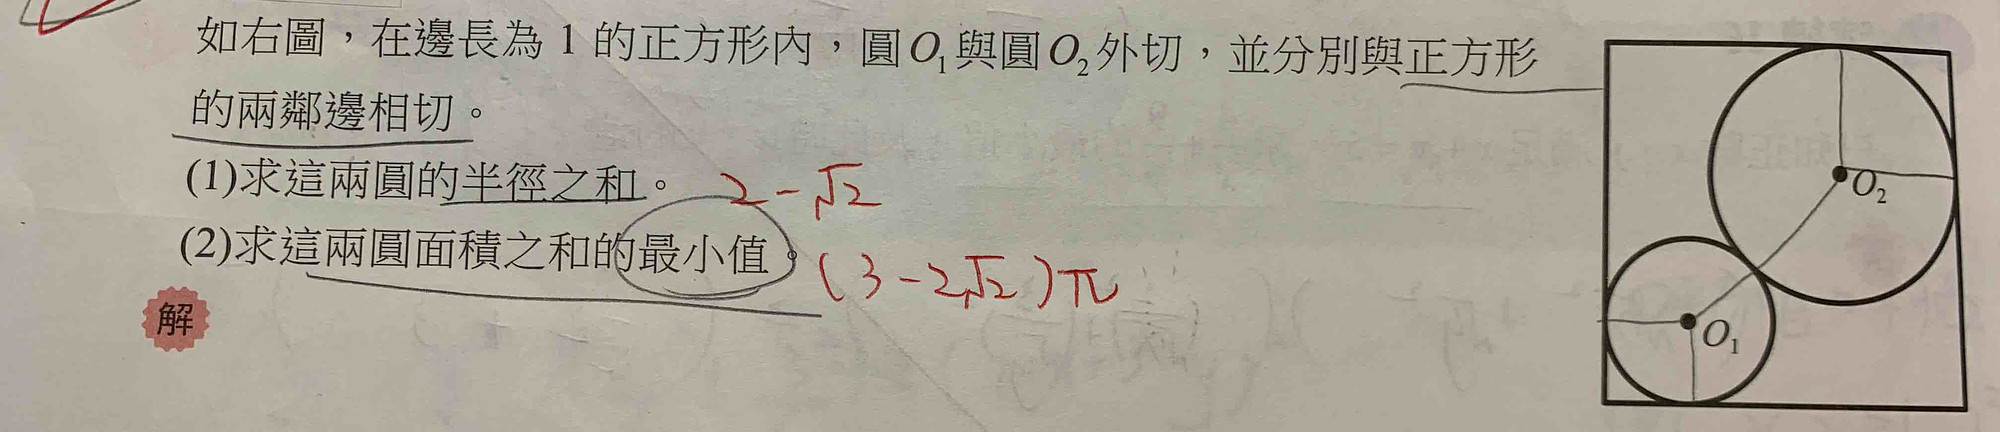 如右圖，在邊長為 1 的正方形內，圓 O₁與圓 O₂ 外切，並分別與正方形
的兩鄰邊相切。
(1)求這兩圓的半徑之和。 2-√2
(2)求這兩圓面積之和的最小值。 (3-2√2)π
解
O₂
O₁